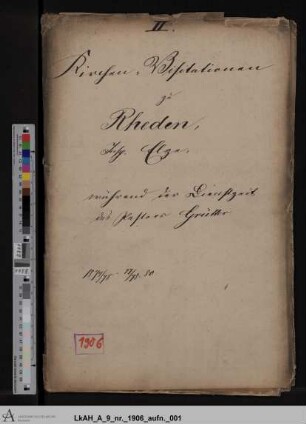 II.
Kirchen-Visitationen
zu
Rheden,
Insp. Elze,
während der Dienstzeit
des Pastors
1906
LkAH_A_9_nr._1906_aufn._001